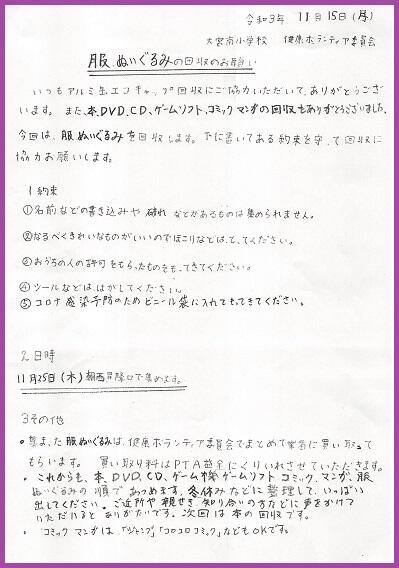 令和3年 11月15日(月)
大宮南小学校 健康ボランティア委員会
服、ぬいぐるみの回収のお願い
いつもアルミ缶エコキャップ回収にご協力いただいて、ありがとうござい
ます。また、本、DVD、CD、ゲームソフト、コミック マンガの回収もありがとうございました。
今回は、服 ぬいぐるみを回収します。下に書いてある約束を守って回収に
協力お願いします。
1 約束
①名前などの書き込みや 破れ などがあるものは集められません。
②なるべくきれいなものがいいのでほこりなどは、とってください。
③おうちの人の許可をもらったものをもってきてください。
④シールなどは、はがしてください。
⑤コロナ感染予防のためビニール袋に入れてもってきてください。
2 日時
11月25日(木)朝西昇降口で集めます。
3 その他
・集まった服ぬいぐるみは、健康ボランティア委員会でまとめて業者に買い取って
もらいます。 買い取り料はPTA基金にくりいれさせていただきます。
・これからも、本、DVD、CD、ゲーム機 ゲームソフト コミック、マンガ、服
ぬいぐるみの順であつめます。冬休みなどに整理して、いっぱい
出してください。ご近所や親せき、知り合いの方などに声をかけて
いただけると ありがたいです。次回は本の回収です。
・コミック マンガは、「ジャンプ」「コロコロコミック」などもOKです。